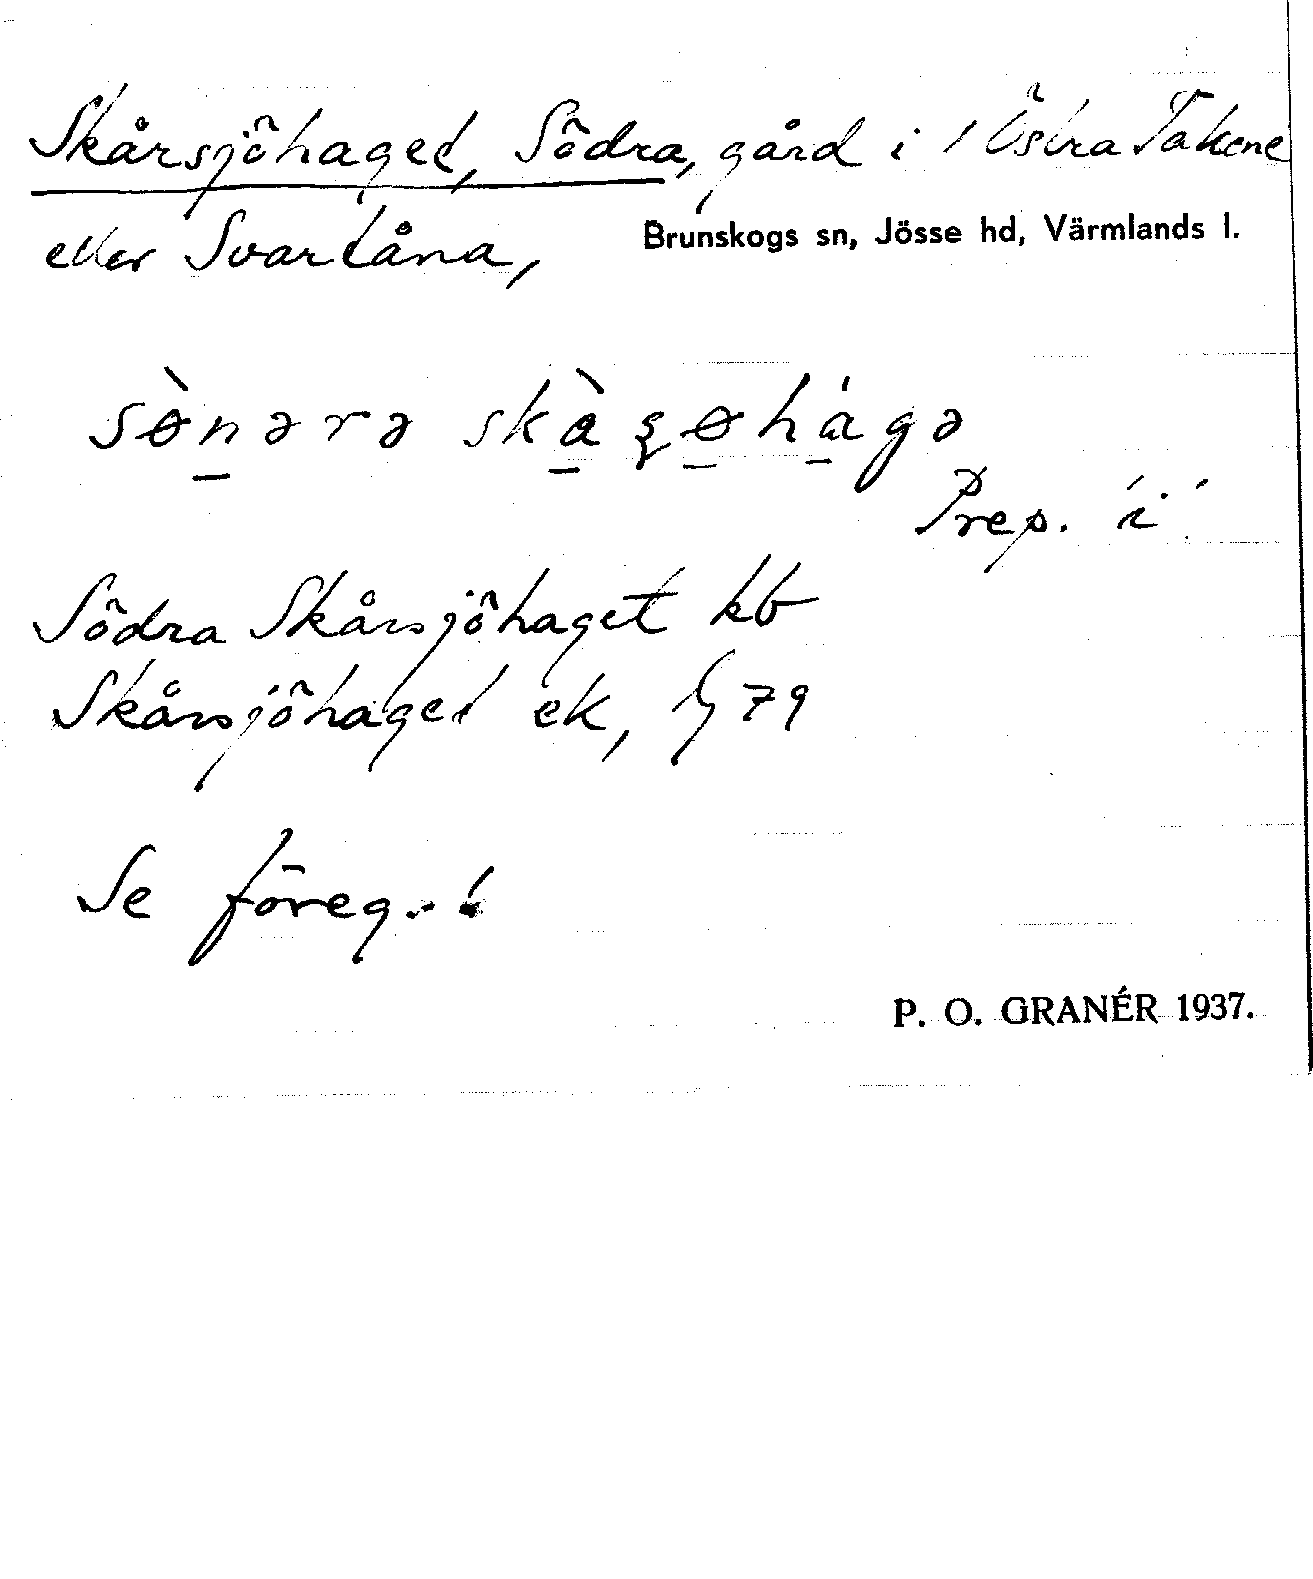 Skårsjöhaget, Södra, gård i 1 Östra Takene
eller Svartåna, Brunskogs sn, Jösse hd, Värmlands l.
sɵ̀nərə skàʂɵhágə
Prep. i
Södra Skårsjöhaget kb
Skårsjöhaget ek, G 79
Se föreg.!
P. O. GRANÉR 1937.